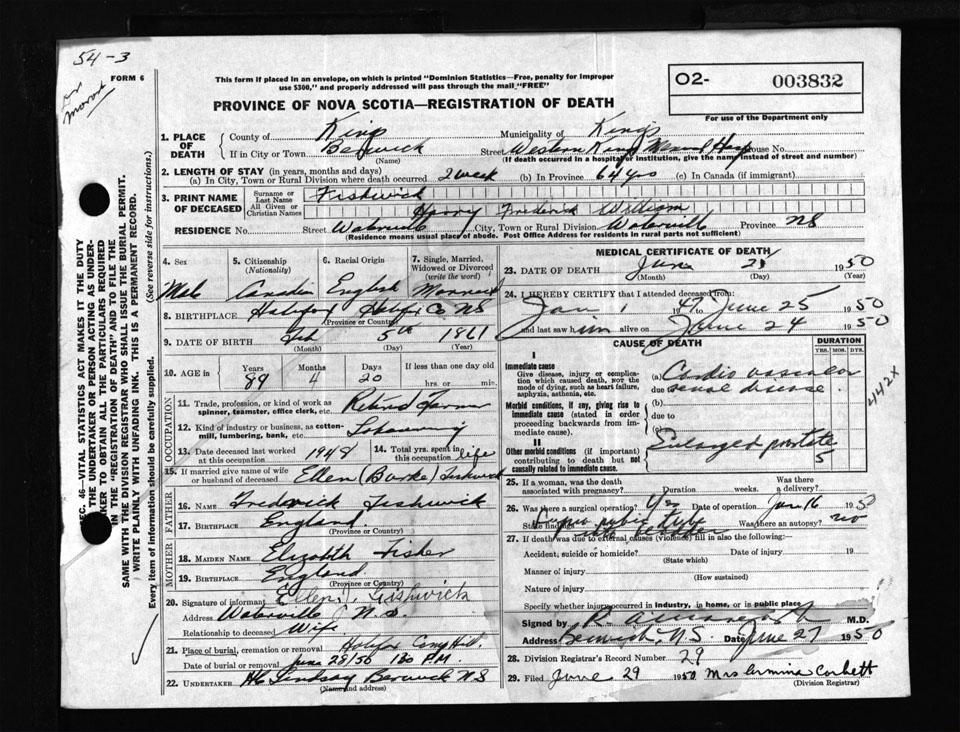 54-3
FORM 6
This form if placed in an envelope, on which is printed "Dominion Statistics—Free, penalty for improper
use $300," and properly addressed will pass through the mail "FREE"
O2- 003832
For use of the Department only
PROVINCE OF NOVA SCOTIA—REGISTRATION OF DEATH
1. PLACE OF DEATH County of Kings Municipality of Kings
If in City or Town Berwick Street Western Kings House No.
(Name) (If death occurred in a hospital or institution, give the name instead of street and number)
2. LENGTH OF STAY (in years, months and days)
(a) In City, Town or Rural Division where death occurred. 2 week (b) In Province 64 yrs (c) In Canada (if immigrant)
3. PRINT NAME OF DECEASED Surname or Last Name Fishwick
All Given or Christian Names Harry Frederick William
RESIDENCE No. Street Waterville City, Town or Rural Division Waterville Province NS
(Residence means usual place of abode. Post Office Address for residents in rural parts not sufficient)
4. Sex 5. Citizenship (Nationality) 6. Racial Origin 7. Single, Married, Widowed or Divorced (write the word)
Male Canadian English Married
8. BIRTHPLACE Halifax Halifax Co NS
(Province or Country)
9. DATE OF BIRTH Feb 5th 1861
(Month) (Day) (Year)
10. AGE in Years Months Days If less than one day old
89 4 20 hrs. or min.
OCCUPATION
11. Trade, profession, or kind of work as spinner, teamster, office clerk, etc. Retired Farmer
12. Kind of industry or business, as cotton-mill, lumbering, bank, etc.
13. Date deceased last worked at this occupation 1948 14. Total yrs. spent in this occupation life
15. If married give name of wife or husband of deceased Ellen (Burke) Fishwick
FATHER
16. Name Frederick Fishwick
17. Birthplace England
(Province or Country)
MOTHER
18. Maiden Name Elizabeth Fisher
19. Birthplace England
(Province or Country)
20. Signature of informant Ellen Fishwick
Address Waterville N.S.
Relationship to deceased Wife
21. Place of burial, cremation or removal Halifax Camp Hill
Date of burial or removal June 28/50 130 P.M.
22. UNDERTAKER Lindsay Berwick NS
(Name and address)
MEDICAL CERTIFICATE OF DEATH
23. DATE OF DEATH June 1950
(Month) (Day) (Year)
24. I HEREBY CERTIFY that I attended deceased from:
Jan 1 1949 to June 25 1950
and last saw him alive on June 24 1950
CAUSE OF DEATH DURATION
YRS. MOS. DYS.
I
Immediate cause
Give disease, injury or complication which caused death, not the mode of dying, such as heart failure, asphyxia, asthenia, etc.
(a) Cardio vascular
due to renal disease
Morbid conditions, if any, giving rise to immediate cause (stated in order proceeding backwards from immediate cause).
(b)
due to
(c)
II
Other morbid conditions (if important) contributing to death but not causally related to immediate cause.
Enlarged prostate 5
442X
25. If a woman, was the death associated with pregnancy? Duration weeks. Was there a delivery?
26. Was there a surgical operation? Yes Date of operation June 16 1950
State findings Was there an autopsy? no
27. If death was due to external causes (violence) fill in also the following:—
Accident, suicide or homicide? Date of injury 19
(State which)
Manner of injury
(How sustained)
Nature of injury
Specify whether injury occurred in industry, in home, or in public place
Signed by M.D.
Address Berwick, N.S. Date June 27 1950
28. Division Registrar's Record Number 29
29. Filed June 29 1950 Mrs Ermina Corbett
(Division Registrar)
SEC. 46—VITAL STATISTICS ACT MAKES IT THE DUTY
OF THE UNDERTAKER OR PERSON ACTING AS UNDERTAKER TO OBTAIN ALL THE PARTICULARS REQUIRED
IN THE "REGISTRATION OF DEATH" AND TO FILE THE
SAME WITH THE DIVISION REGISTRAR WHO SHALL ISSUE THE BURIAL PERMIT.
WRITE PLAINLY WITH UNFADING INK. THIS IS A PERMANENT RECORD.
Every item of information should be carefully supplied. (See reverse side for instructions.)